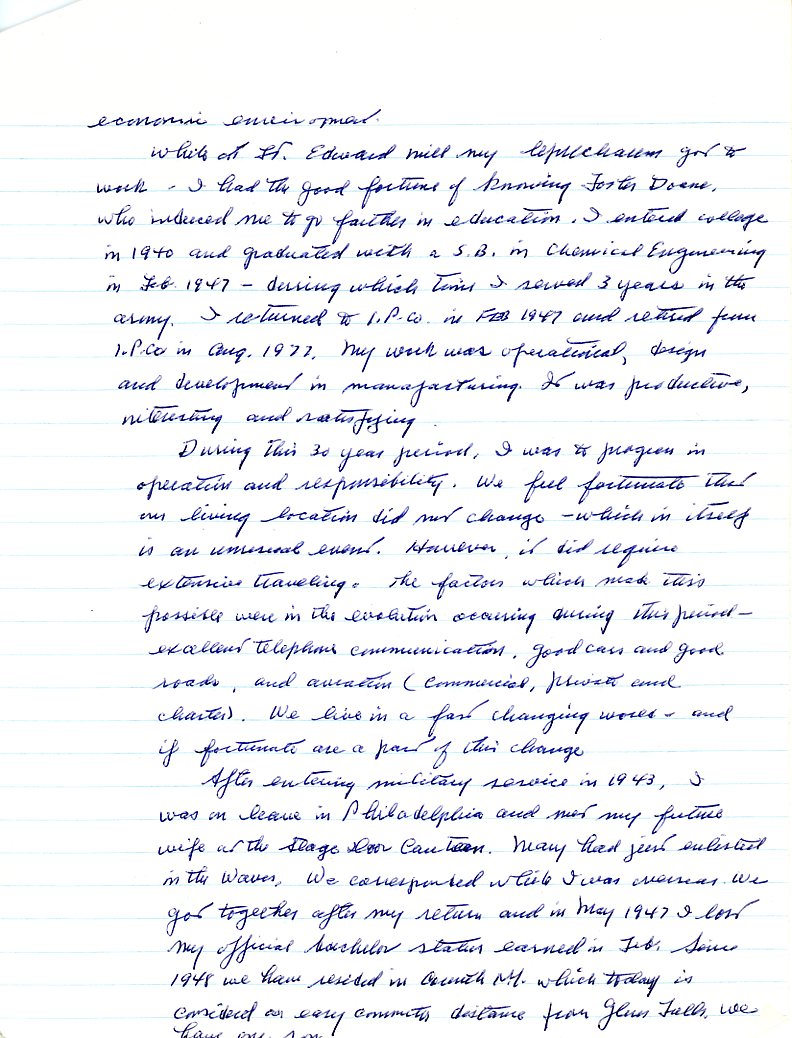 economic enviroment.
While at Ft. Edward mill my leprechauns got to
work - I had the good fortune of knowing Foster Doane,
who induced me to go further in education. I entered college
in 1940 and graduated with a S.B. in Chemical Engineering
in Feb. 1947 - during which time I served 3 years in the
army. I returned to I.P.Co. in FEB 1947 and retired from
I.P.Co in Aug. 1977. My work was operational, design
and development in manufacturing. It was productive,
interesting and satisfying.
During this 30 year period, I was to progress in
operation and responsibility. We feel fortunate that
our living location did not change - which in itself
is an unusual event. However, it did require
extensive traveling. The factors which made this
possible were in the evolution occuring during this period -
excellent telephone communication, good cars and good
roads, and aviation (commercial, private and
charter). We live in a fast changing world - and
if fortunate are a part of this change
After entering military service in 1943, I
was on leave in Philadelphia and met my future
wife at the Stage Door Canteen. Mary had just enlisted
in the Waves. We corresponded while I was overseas. We
got together after my return and in May 1947 I lost
my official bachelor status earned in Feb. Since
1948 we have resided in which today is
considered an easy commuter distance from Glens Falls. We
have one son